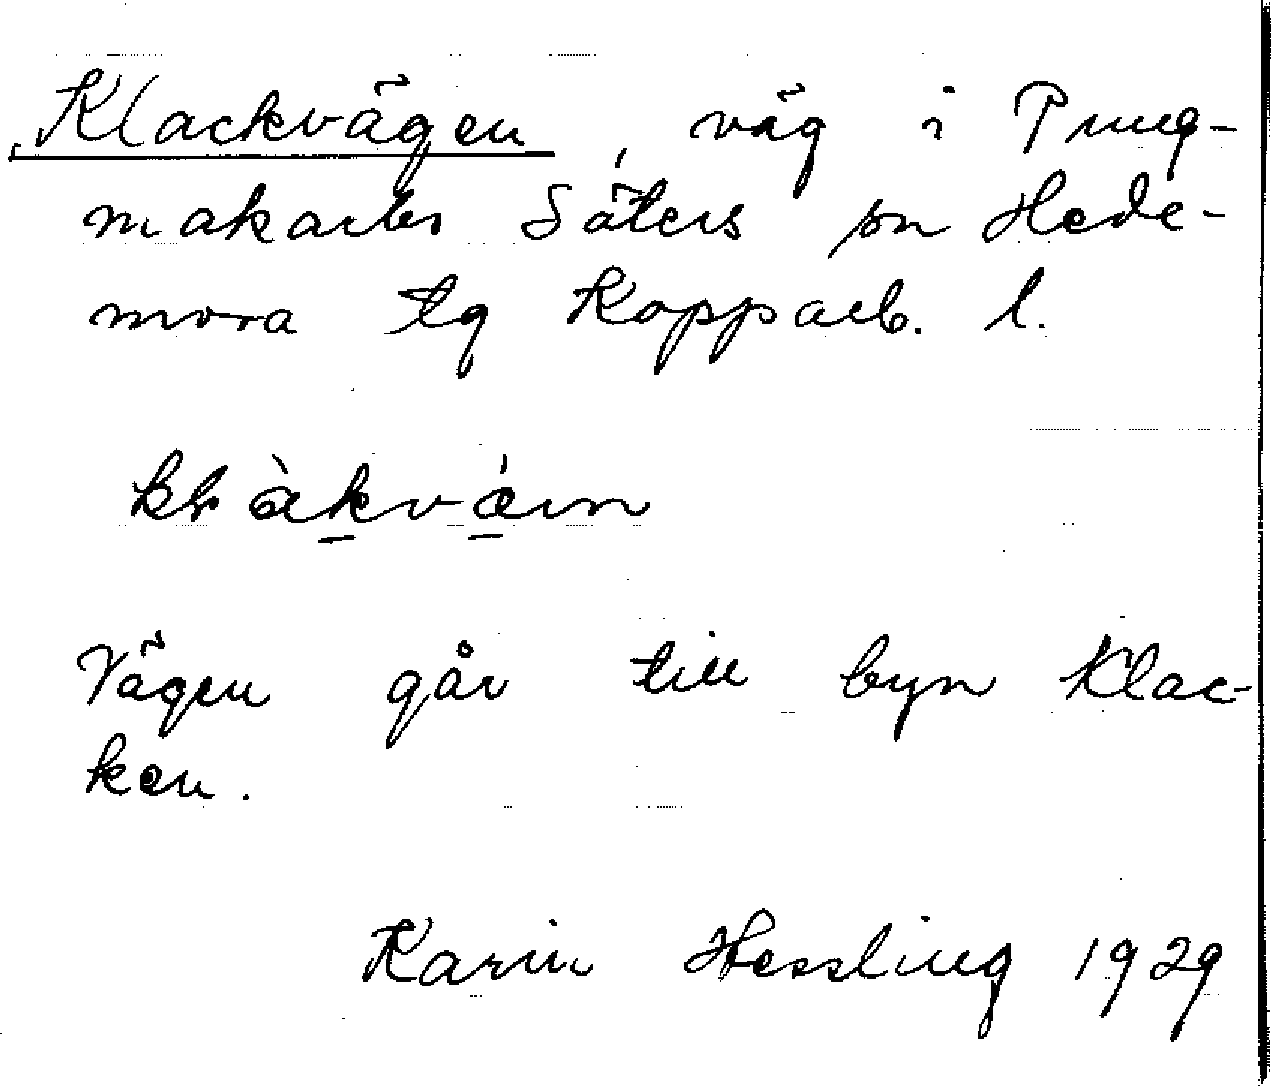 Klackvägen, väg i Pung-
makarbo Säters sn Hede-
mora tg Kopparb. l.
Vägen går till byn Klac-
ken.
Karin Hessling 1929